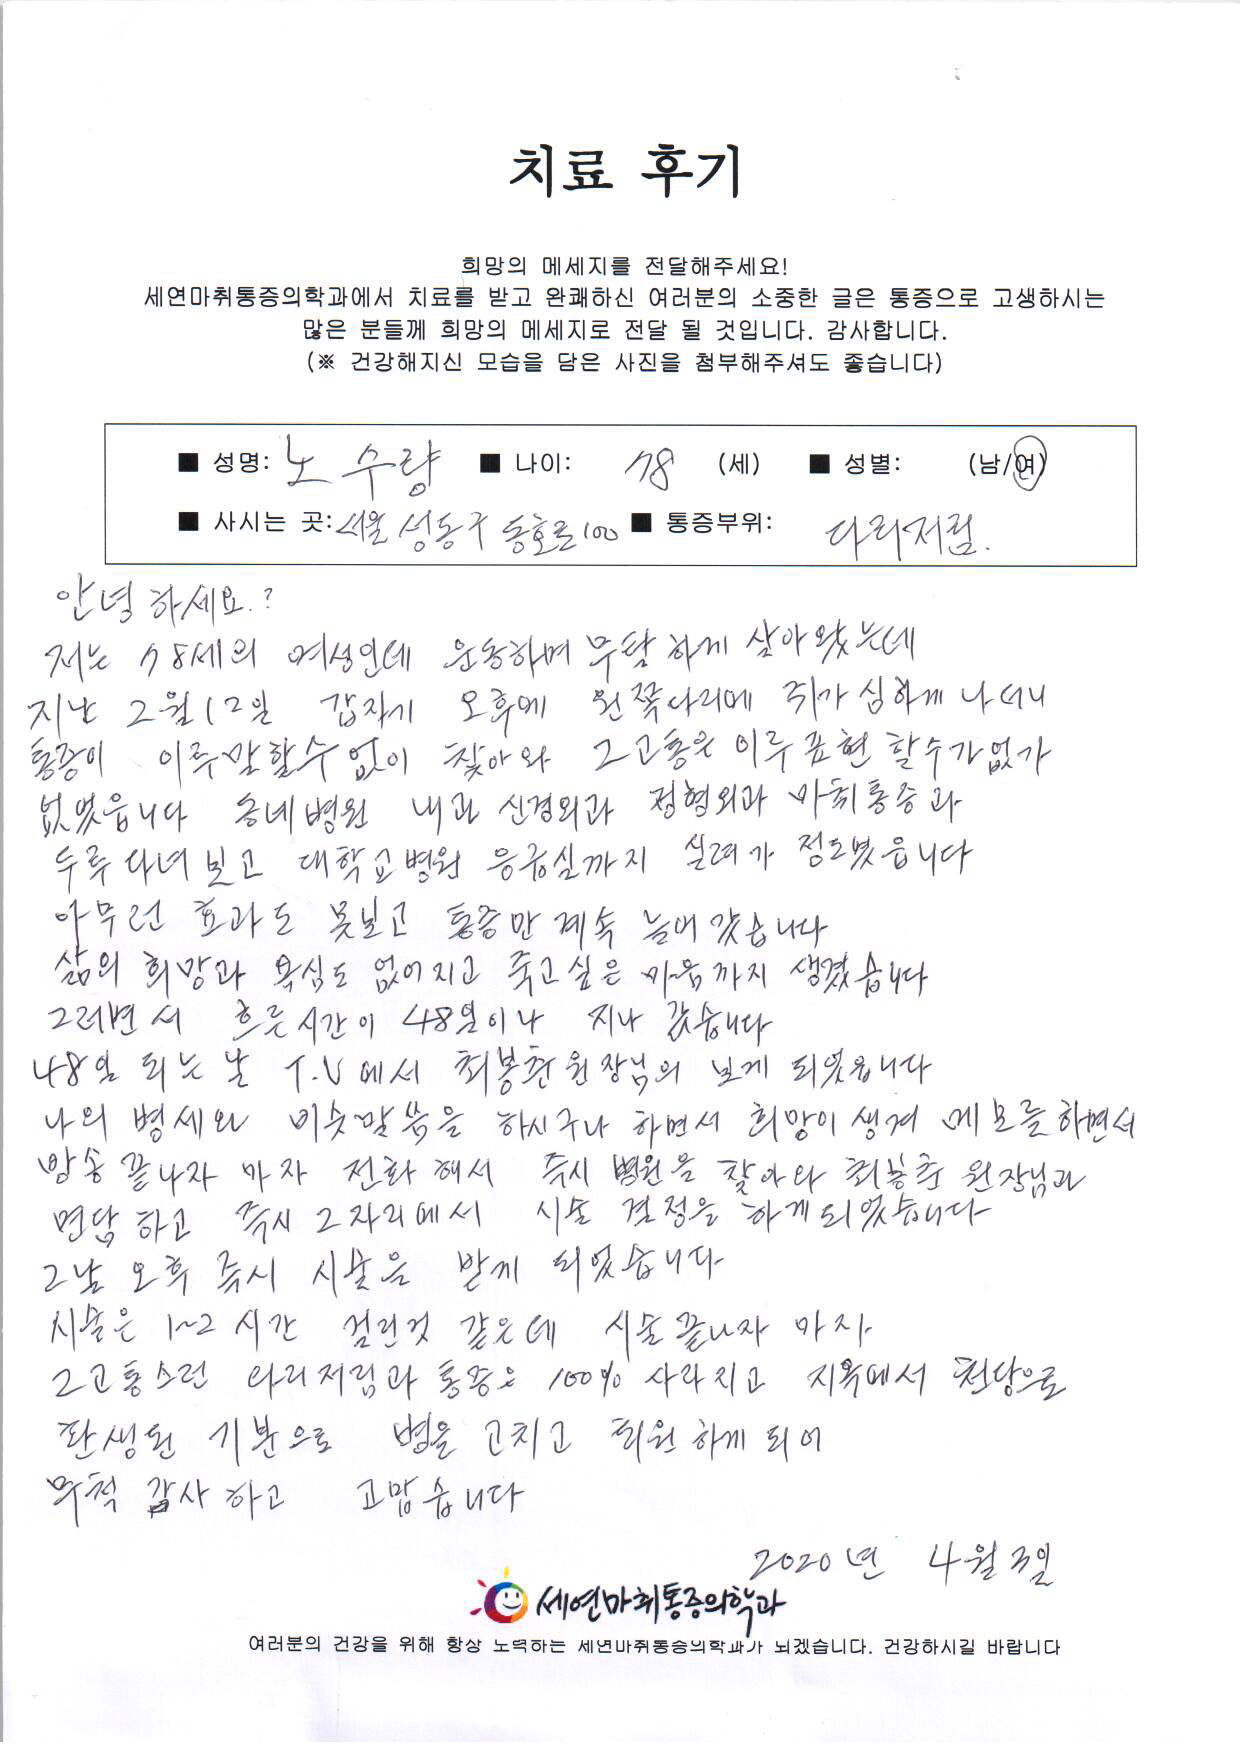 치료 후기
희망의 메세지를 전달해주세요!
세연마취통증의학과에서 치료를 받고 완쾌하신 여러분의 소중한 글은 통증으로 고생하시는
많은 분들께 희망의 메세지로 전달 될 것입니다. 감사합니다.
(※ 건강해지신 모습을 담은 사진을 첨부해주셔도 좋습니다)
■ 성명: 노 수량 ■ 나이: 78 (세) ■ 성별: (남/여)
■ 사시는 곳: 서울 성동구 동호로 100 ■ 통증부위: 다리저림.
안녕 하세요.?
저는 78세의 여성인데 운동하며 무탈 하게 살아왔는데
지난 2월 12일 갑자기 오후에 왼쪽다리에 쥐가 심하게 나더니
통증이 이루말할수 없이 찾아와 그고통은 이루 표현 할수가없가
없었읍니다 동네병원 내과 신경외과 정형외과 마취통증과
두루 다녀 보고 대학교병원 응급실까지 실려가 정도봤읍니다
아무런 효과도 못보고 통증만 계속 늘어 갔습니다
삶의 희망과 욕심도 없어지고 죽고싶은 마음까지 생겼습니다
그러면서 흐른시간이 48일이나 지나 갔습니다
48일 되는 날 T.V에서 최봉춘원장님의 보게 되었읍니다
나의 병세와 비슷말씀을 하시구나 하면서 희망이 생겨 메모를하면서
방송 끝나자 마자 전화 해서 즉시 병원을 찾아와 최봉춘 원장님과
면담 하고 즉시 그자리에서 시술 결정을 하게되었습니다
그날 오후 즉시 시술을 받게 되었습니다
시술은 1~2 시간 걸린것 같은데 시술끝나자 마자
그고통스런 다리저림과 통증은 100% 사라지고 지옥에서 천당으로
환생된 기분으로 병을 고치고 퇴원하게 되어
무척 감사 하고 고맙습니다
2020년 4월 3일
세연마취통증의학과
여러분의 건강을 위해 항상 노력하는 세연마취통증의학과가 되겠습니다. 건강하시길 바랍니다